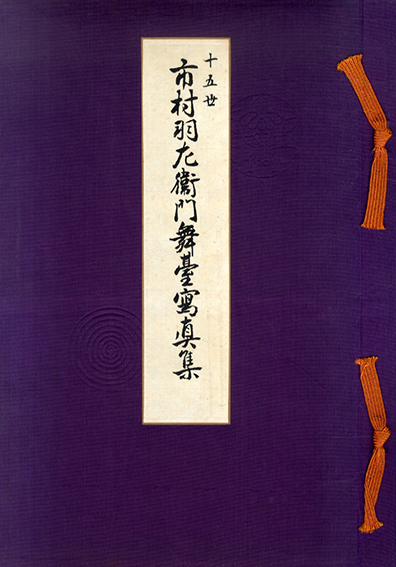 十五世
市村羽左衞門舞臺寫眞集